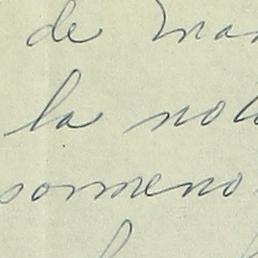 de man
la not
sormeno